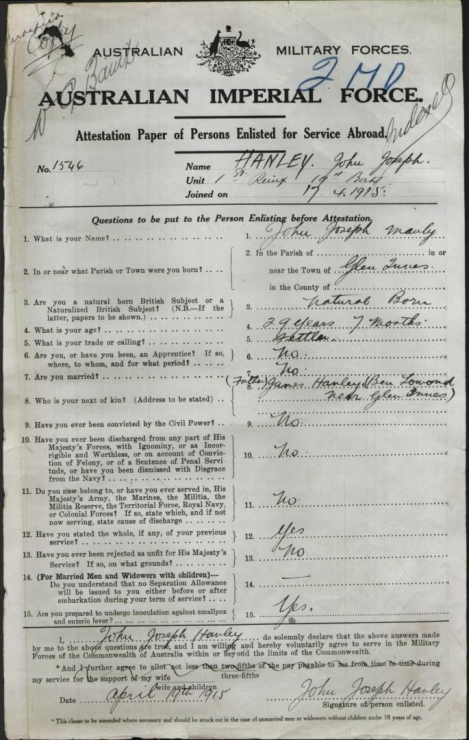 Copy
AUSTRALIAN MILITARY FORCES.
270
AUSTRALIAN IMPERIAL FORCE.
Indexed
Attestation Paper of Persons Enlisted for Service Abroad.
No. 1546 Name HANLEY. John Joseph.
Unit 1st Reinf 19th Batt
Joined on 17 4.1915.
Questions to be put to the Person Enlisting before Attestation.
1. What is your Name? 1. John Joseph Hanly
2. In or near what Parish or Town were you born? 2. In the Parish of in or
near the Town of Glen Innes
in the County of
3. Are you a natural born British Subject or a
Naturalized British Subject? (N.B.—If the
latter, papers to be shown.) 3. Natural Born
4. What is your age? 4. 29 years 7 months
5. What is your trade or calling? 5. Settler
6. Are you, or have you been, an Apprentice? If so,
where, to whom, and for what period? 6. No
7. Are you married? 7. No
8. Who is your next of kin? (Address to be stated) 8. (Father) James Hanley (Ben Lomond
near Glen Innes)
9. Have you ever been convicted by the Civil Power? 9. No
10. Have you ever been discharged from any part of His
Majesty's Forces, with Ignominy, or as Incor-
rigible and Worthless, or on account of Convict-
ion of Felony, or of a Sentence of Penal Servi-
tude, or have you been dismissed with Disgrace
from the Navy? 10. No
11. Do you now belong to, or have you ever served in, His
Majesty's Army, the Marines, the Militia, the
Militia Reserve, the Territorial Force, Royal Navy,
or Colonial Forces? If so, state which, and if not
now serving, state cause of discharge 11. No
12. Have you stated the whole, if any, of your previous
service? 12. Yes
13. Have you ever been rejected as unfit for His Majesty's
Service? If so, on what grounds? 13. No
14. (For Married Men and Widowers with children)—
Do you understand that no Separation Allowance
will be issued to you either before or after
embarkation during your term of service? 14. —
15. Are you prepared to undergo inoculation against smallpox
and enteric fever? 15. Yes.
I, John Joseph Hanley do solemnly declare that the above answers made
by me to the above questions are true, and I am willing and hereby voluntarily agree to serve in the Military
Forces of the Commonwealth of Australia within or beyond the limits of the Commonwealth.
* And I further agree to allot not less than two-fifths of the pay payable to me from time to time during
three-fifths
my service for the support of my wife
wife and children
Date April 17th 1915 John Joseph Hanley
Signature of person enlisted.
* This clause to be amended where necessary and should be struck out in the case of unmarried men or widowers without children under 18 years of age.